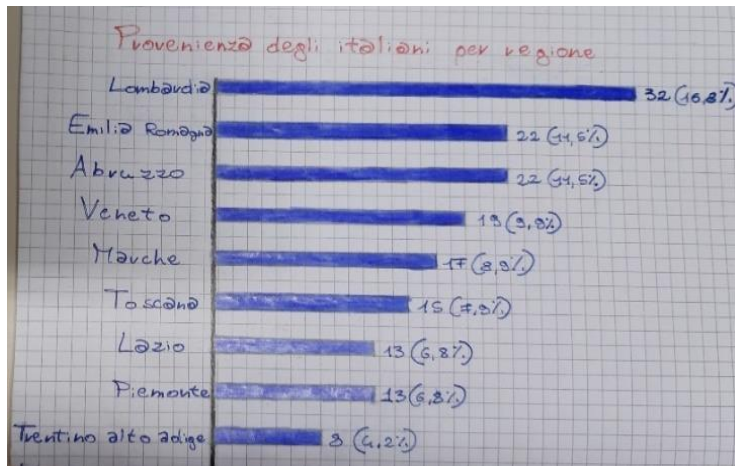 Provenienza degli italiani per regione
Lombardia 32 (16,8%)
Emilia Romagna 22 (11,5%)
Abruzzo 22 (11,5%)
Veneto 19 (9,9%)
Marche 17 (8,9%)
Toscana 15 (7,9%)
Lazio 13 (6,8%)
Piemonte 13 (6,8%)
Trentino alto adige 8 (4,2%)